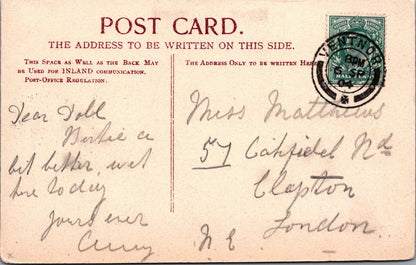 POST CARD.
THE ADDRESS TO BE WRITTEN ON THIS SIDE.
THIS SPACE AS WELL AS THE BACK MAY
BE USED FOR INLAND COMMUNICATION.
POST-OFFICE REGULATION.
THE ADDRESS ONLY TO BE WRITTEN HERE
VENTNOR
SP
04
HALFPENNY
Dear
a
bit better, wet
here today
Yours ever
Miss Matthews
57 Oakfield Rd
Clapton
London
N E